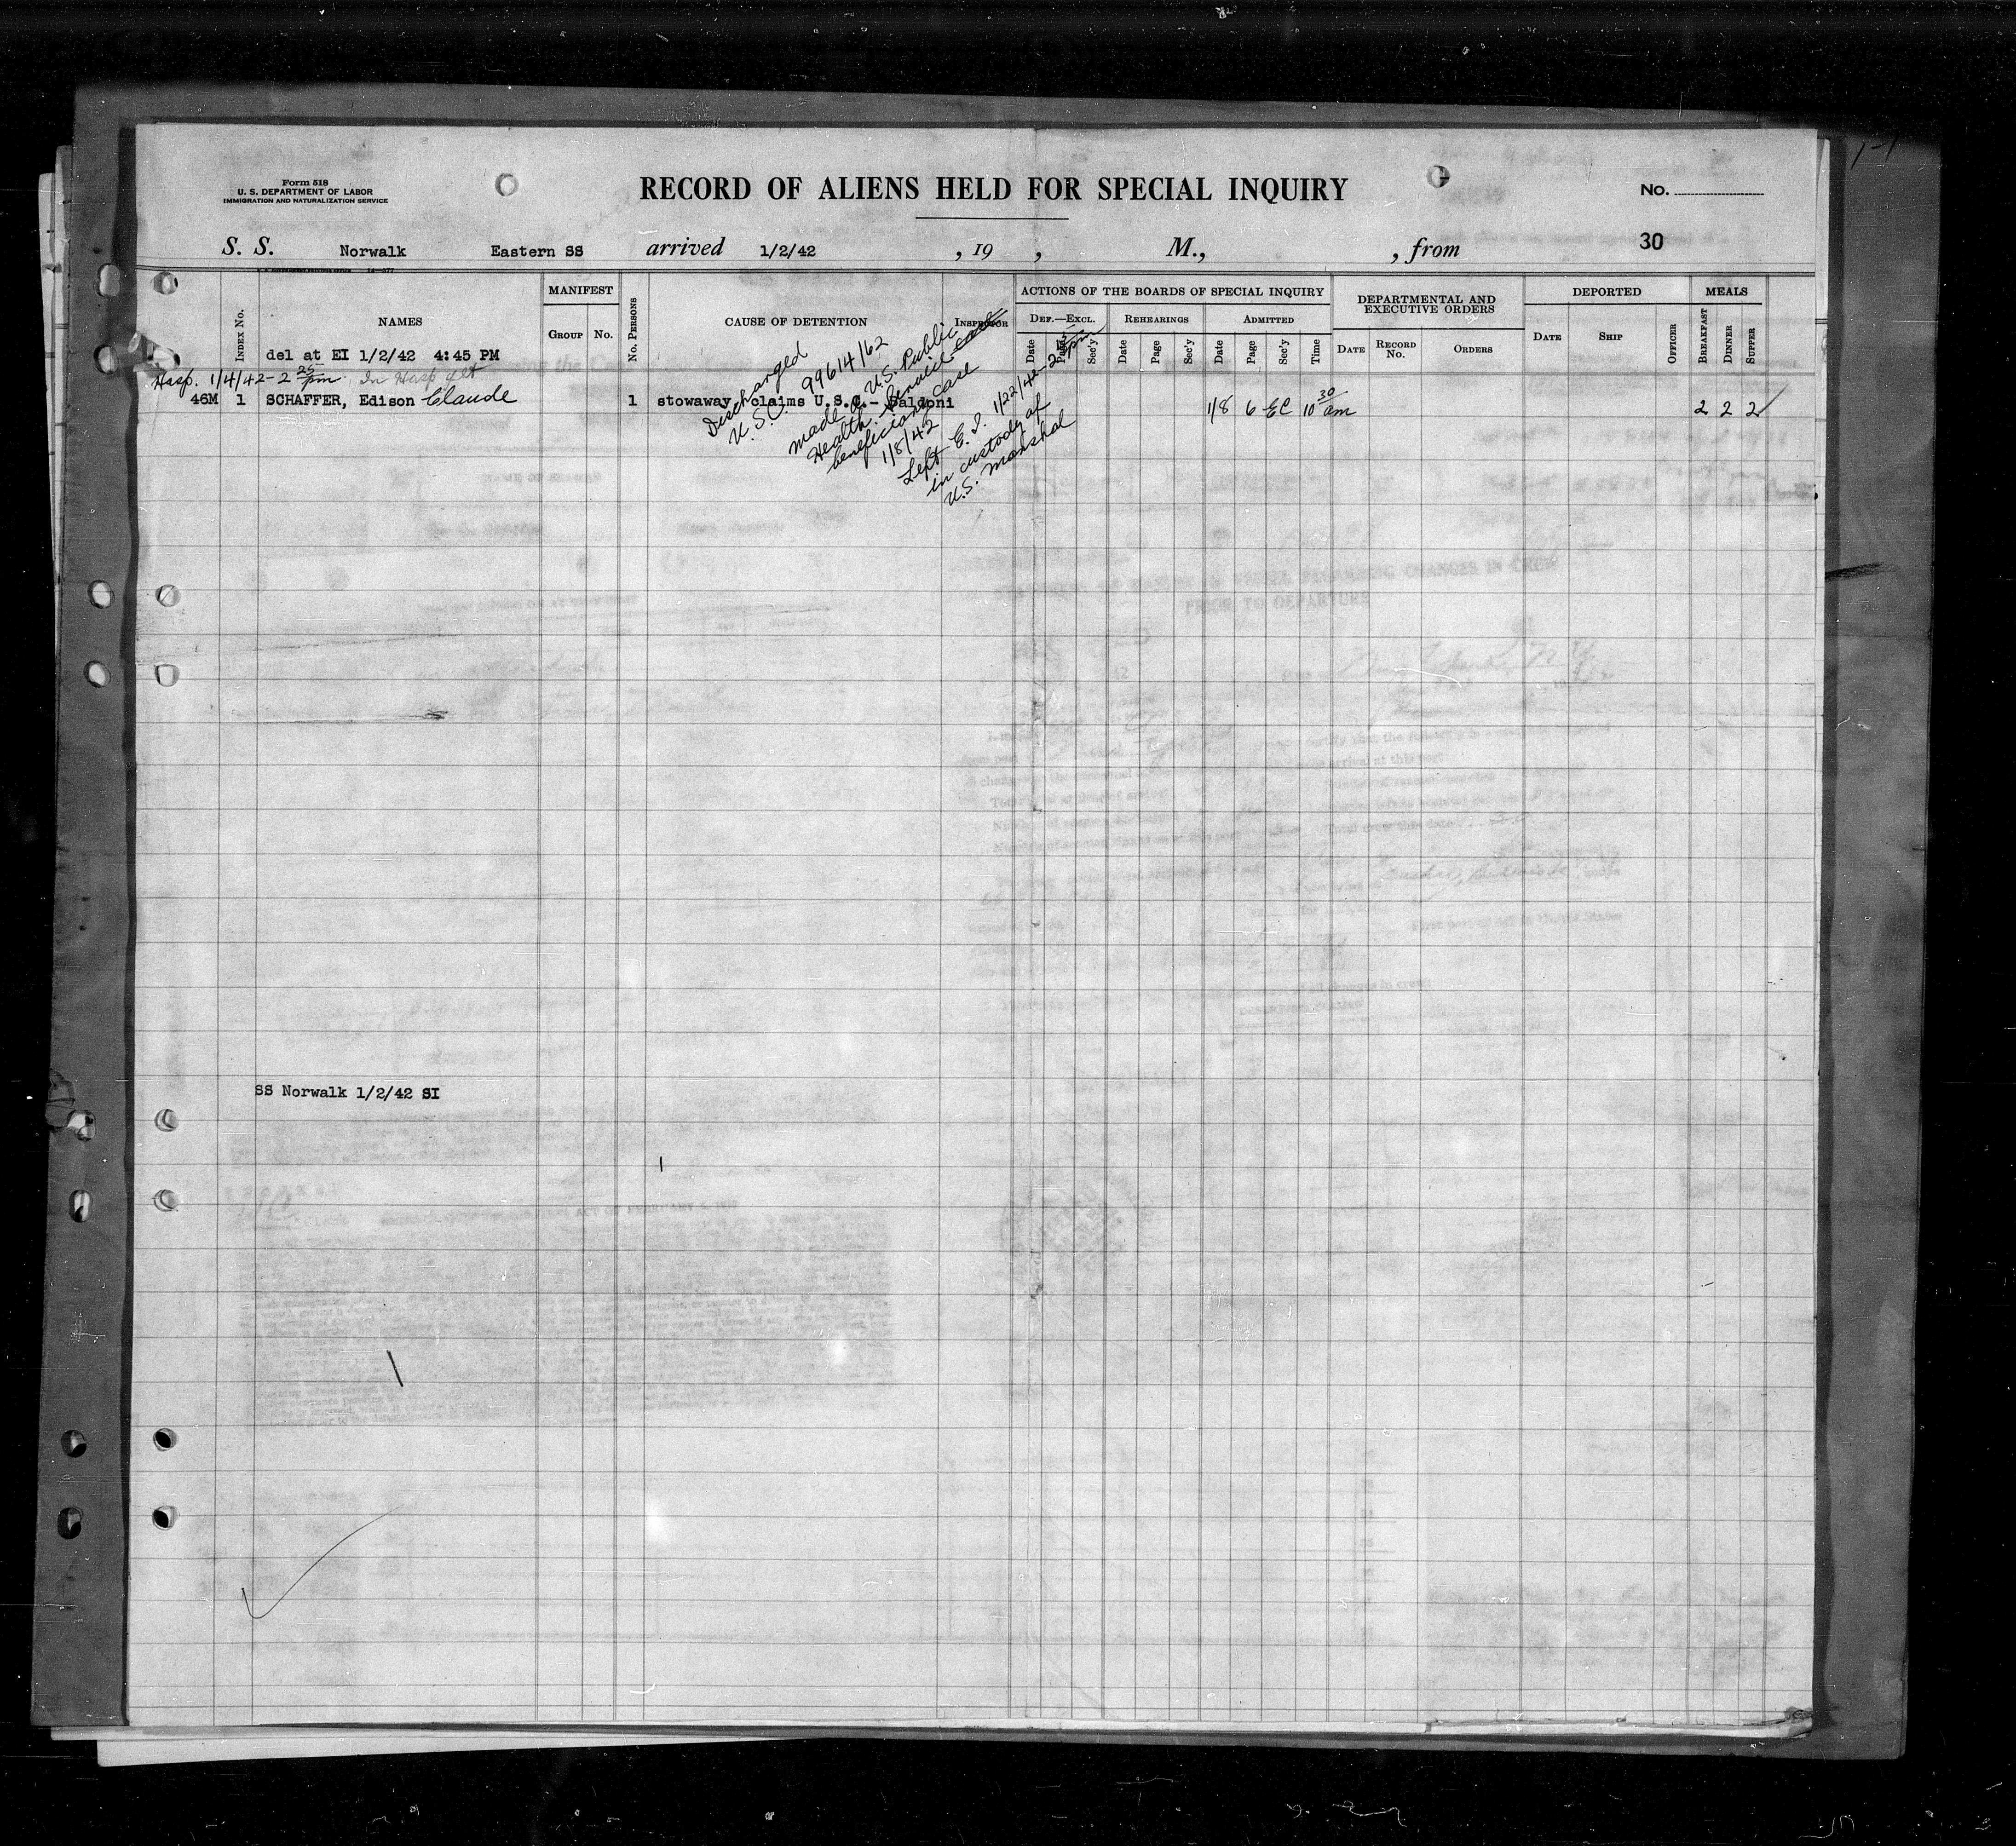 Form 518
U. S. DEPARTMENT OF LABOR
IMMIGRATION AND NATURALIZATION SERVICE
RECORD OF ALIENS HELD FOR SPECIAL INQUIRY
No.
S. S. Norwalk Eastern SS arrived 1/2/42 , 19 , M., , from 30
INDEX No.
NAMES
MANIFEST
GROUP
No.
No. PERSONS
CAUSE OF DETENTION
INSPECTOR
ACTIONS OF THE BOARDS OF SPECIAL INQUIRY
DEF.—EXCL.
Date
Page
Sec'y
REHEARINGS
Date
Page
Sec'y
ADMITTED
Date
Page
Sec'y
Time
DEPARTMENTAL AND
EXECUTIVE ORDERS
DATE
RECORD
No.
ORDERS
DEPORTED
DATE
SHIP
OFFICER
MEALS
BREAKFAST
DINNER
SUPPER
del at EI 1/2/42 4:45 PM
Hosp. 1/4/42 - 2 25 pm In Hosp yet
46M 1 SCHAFFER, Edison Claude 1 stowaway, claims U.S.C. - Baldoni 1/8 6 EC 10 30 am 2 2 2
Discharged
U.S.C. 99614/62
made a U.S. Public
Health Service case
beneficiary case
1/8/42
Left E.I. 1/22/42 - 2 pm
in custody of
U.S. Marshal
SS Norwalk 1/2/42 SI
1